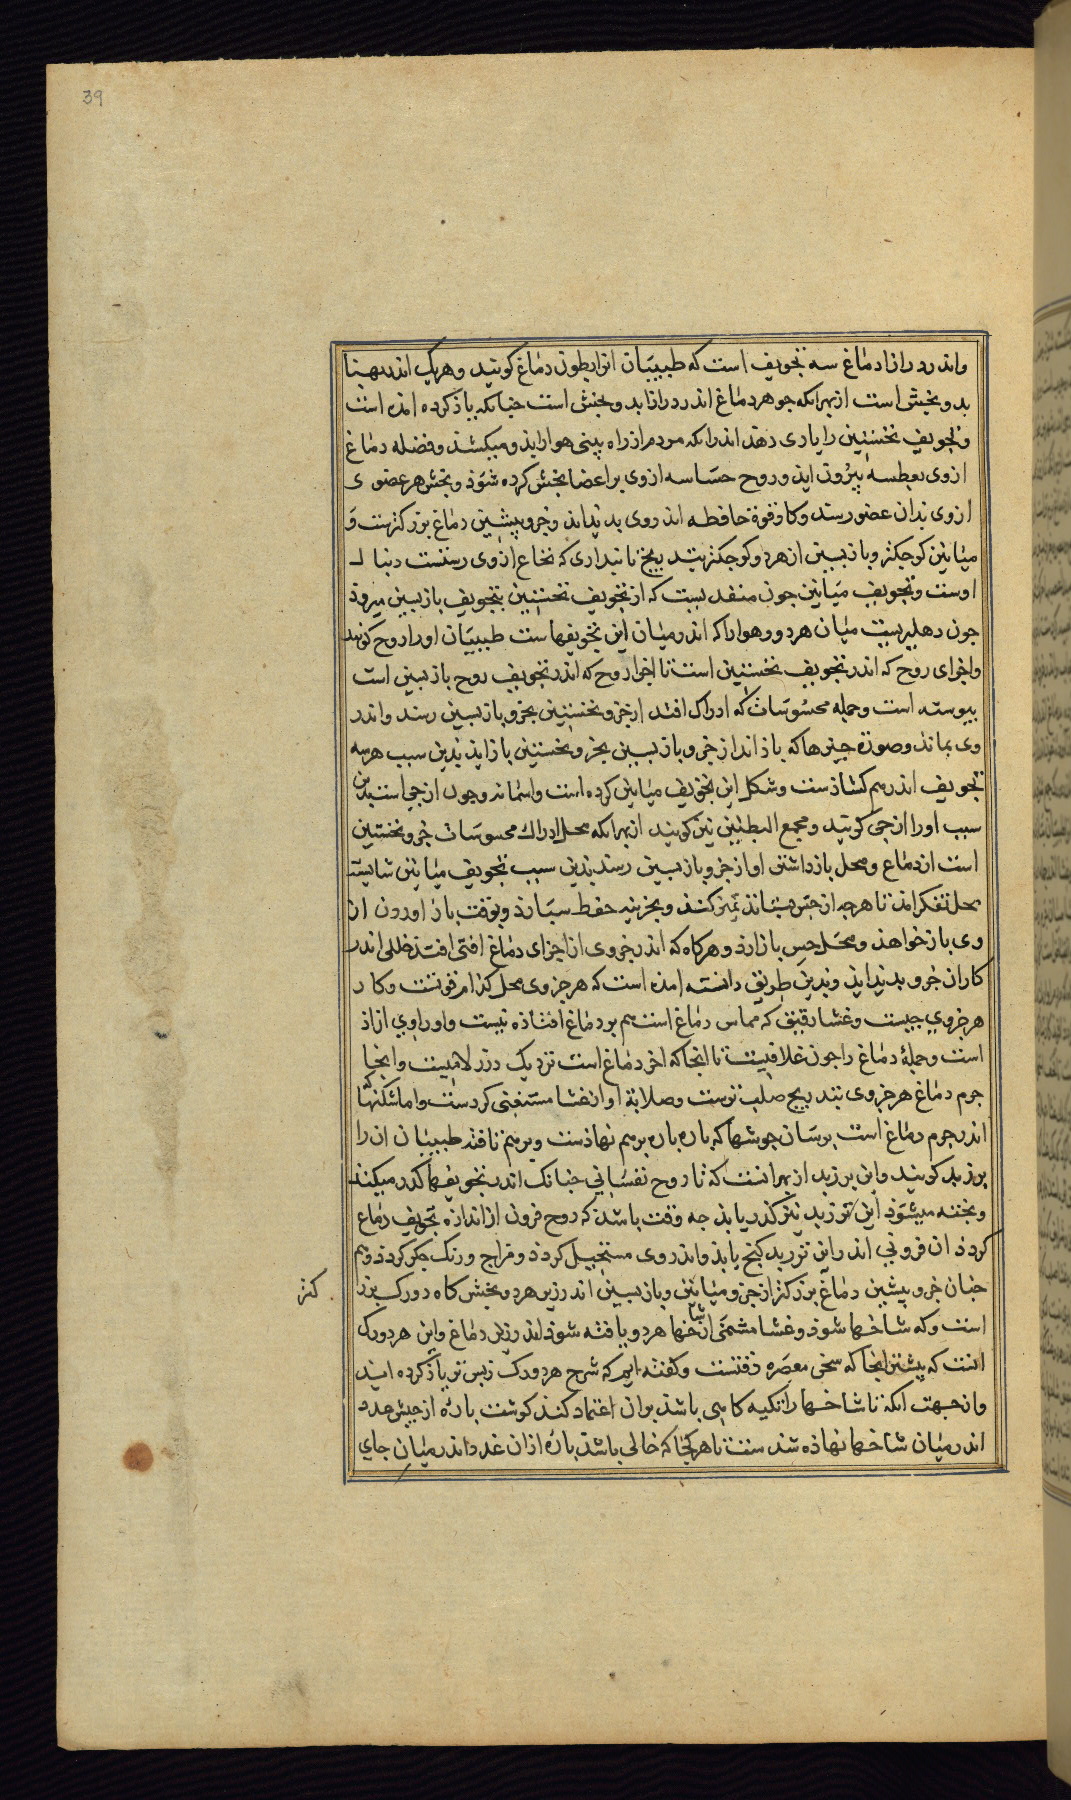 39
واندر درازا دماغ سه تجویف است که طبیبان انرا بطون دماغ کویند وهریک اندر بهنا
بدو بخش است از بهرانکه جوهر دماغ اندر درازا بدو بخش است جنانکه یاذ کرده امذه است
وتجویف نخستین را یاری دهذ اندرانکه مردم از راه بینی هوا را یذو میکشذ وفضله دماغ
ازوی بعطسه بیرون ایذ وروح حساسه ازوی بر اعضا بخش کرده شوذ وبخش هر عضوی
ازوی بذان عضو رسد وکار قوة حافظه اندروی بدیذ ایذ وجزو پیشین دماغ بزرکترست و
میانین کوجکتر وبازبسین از هردو کوجکتر بتدریج تا بیداری که نخاع ازوی رستست دنبال
اوست وتجویف میانین جون منفذیست که از تجویف نخستین بتجویف بازبسین میروذ
جون دهلیزیست میان هردو وهوارا که اندر میان این تجویفهاست طبیبان اورا روح کویند
واجزای روح که اندر تجویف نخستین است با اجزا روح که اندر تجویف روح بازبسین است
بیوسته است وجمله محسوسات که ادراک افتد از جزو نخستین بجزو بازبسین رسد واندر
وی بماند وصورة جیزها که باز اندازجزو بازبسین بجزو نخستین باز ایذ بذین سبب هرسه
تجویف اندرهم کشاذست وشکل این تجویف میانین کرده است واسمانه وجون ازجی است بدین
سبب اورا ازجی کویند ومجمع البطنین نیز کویند ازبهرانکه محل ادراک محسوسات جزو نخستین
است از دماغ ومحل بازداشتن او از جزو بازبسین رسد بذین سبب تجویف میانین شایسته
محل تفکر امذ تا هرجه از حس بستاند تمیز کند وبخزینه حفظ سپارد وبوقت باز اوردن از
وی بازخواهذ ومحل حس بازارد وهرکاه که اندر جزوی از اجزای دماغ افتی افتذ خللی اندر
کاران جزو بدیذایذ وبدین طریق دانسته امذه است که هر جزوی محل کدام قوتست وکار
هر جزوی جیست وغشا رقیق که مماس دماغ است هم بر دماغ افتاذه نیست واورا وی ازاذ
است وجمله دماغ را جون غلافیست تا انجا که اخر دماغ است نزدیک درز لامیست وانجا
جرم دماغ هر جزوی بتدریج صلب ترست وصلابة او از غشا مستغنی کردست واما شکنها که
اندر جرم دماغ است برسان جوشها که باره باره برهم نهاذست وبرهم تافته طبیبان ان را
برزید کویند واین برزید از بهرانست که تا روح نفسانی جنانک اندر تجویفها کذر میکند
وبخته میشوذ این تزرید نیز کذر یابذ جه وقت باشذ که روح فزون از اندازه تجویف دماغ
کردذ ان فزونی اندر این تزرید کنج یابذ واندروی مستحیل کردذ ومزاج ورنک جکر کردذ وهم
جنان جزو پیشین دماغ بزرکتر از جزو میانین وبازبسین اندر زیر هردو بخش کاه دورک بزر
کتر
است وکه شاخها شوذ وغشا مشیمی از شاخها هردو بافته شوذ اندر زیر دماغ واین هردورک
انست که پیشتر انجا که سخن معصره رفتست وکفته ایم که شرح هردورک زبس تر یاذ کرده امیذ
واز جهت انکه تا شاخها را تکیه کاهی باشذ بران اعتماد کند کوشت باره از جیش غده
اندر میان شاخها نهاذه شذ ست تا هرکجا که خالی باشذ باره ازان غدد اندر میان جای